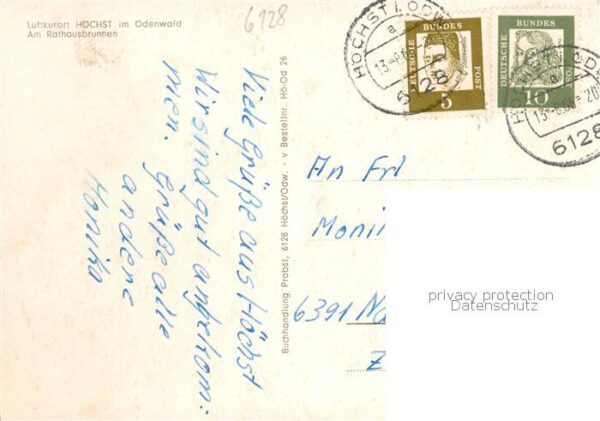 Luftkurort HÖCHST im Odenwald
Am Rathausbrunnen
6128
Viele Grüße aus Höchst
Wir sind gut angekom:
men. Grüße alle
andere
Monika
Buchhandlung Probst, 6128 Höchst/Odw. - v Bestellnr. Hö-Od 26
HÖCHST I. ODW
a
6128
DEUTSCHE BUNDES POST
5
DEUTSCHE BUNDES
10
a
6128
An Frl
Moni
6391 Na
Z
privacy protection
Datenschutz